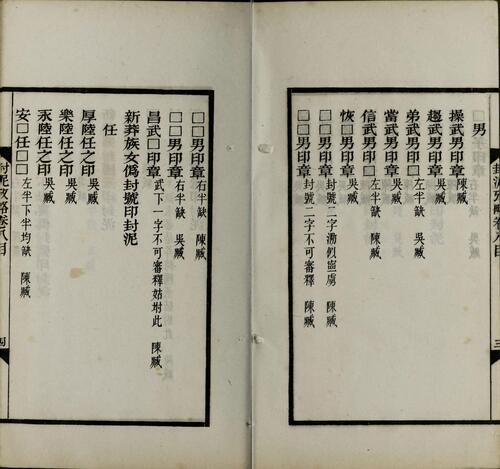 封泥攷略卷八目
三
男
操武男印章 陳臧
趨武男印章 吳臧
弟武男□□ 左半缺 吳臧
當武男印章 吳臧
信武男印□ 左半缺 陳臧
恢□男印章 吳臧
□□男印章 封號二字泐似寍虜 陳臧
□□男印章 封號二字不可審釋 陳臧
□□男印章 右半缺 陳臧
□□男印章 右半缺 吳臧
昌武□印章 武下一字不可審釋姑坿此 陳臧
新莽族女僞封號印封泥
任
厚陸任之印 吳臧
樂陸任之印 吳臧
永陸任之印 吳臧
安□任□□ 左半下半均缺 陳臧
封泥攷略卷八目
四